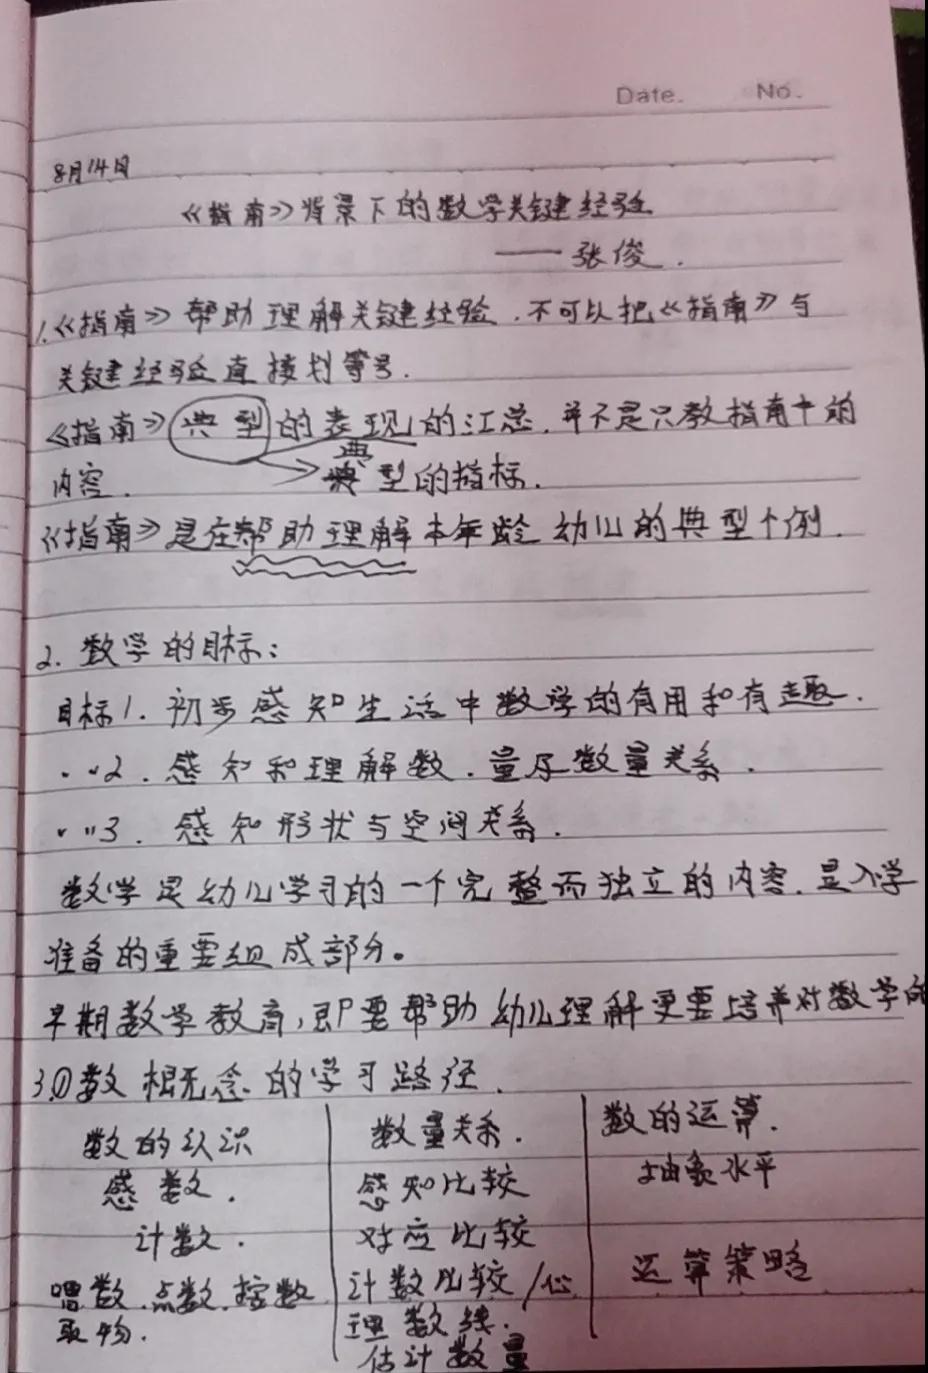 Date. No.
8月14日
《指南》背景下的数学关键经验
——张俊.
1.《指南》帮助理解关键经验.不可以把《指南》与
关键经验直接划等号.
《指南》典型的表现的汇总.并不是只教指南中的
内容. 典型的指标.
《指南》是在帮助理解本年龄幼儿的典型个例.
2. 数学的目标:
目标1. 初步感知生活中数学的有用和有趣.
〃2. 感知和理解数.量及数量关系.
〃3. 感知形状与空间关系.
数学是幼儿学习的一个完整而独立的内容.是入学
准备的重要组成部分。
早期数学教育,即要帮助幼儿理解更要培养对数学的
3.①数概念的学习路径.
数的认识 数量关系. 数的运算.
感数. 感知比较 抽象水平
计数. 对应比较
唱数.点数.按数 计数比较/心 运算策略
取物. 理数线.
估计数量